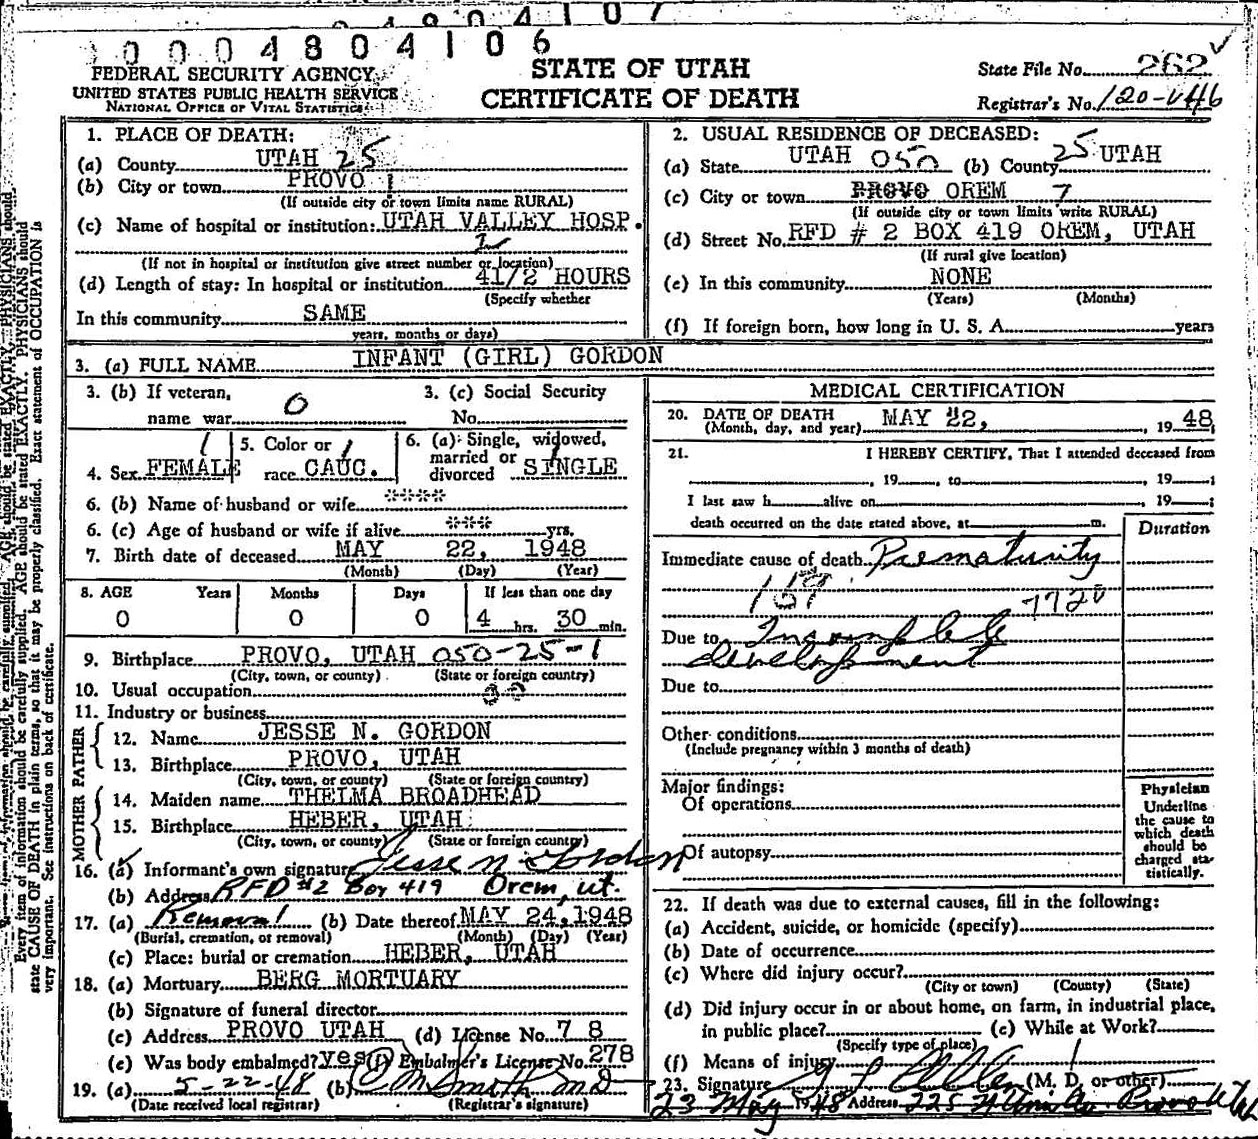 0004804106
FEDERAL SECURITY AGENCY
UNITED STATES PUBLIC HEALTH SERVICE
NATIONAL OFFICE OF VITAL STATISTICS
STATE OF UTAH
CERTIFICATE OF DEATH
State File No. 262
Registrar's No. 120-V446
1. PLACE OF DEATH:
(a) County UTAH 25
(b) City or town PROVO 1
(If outside city or town limits name RURAL)
(c) Name of hospital or institution: UTAH VALLEY HOSP.
(If not in hospital or institution give street number or location)
(d) Length of stay: In hospital or institution 41/2 HOURS
(Specify whether
In this community SAME
years, months or days)
2. USUAL RESIDENCE OF DECEASED:
(a) State UTAH 050 (b) County 25 UTAH
(c) City or town PROVO OREM 7
(If outside city or town limits write RURAL)
(d) Street No. RFD # 2 BOX 419 OREM, UTAH
(If rural give location)
(e) In this community NONE
(Years) (Months)
(f) If foreign born, how long in U. S. A. years
3. (a) FULL NAME INFANT (GIRL) GORDON
3. (b) If veteran, 3. (c) Social Security
name war 0 No.
4. Sex FEMALE 5. Color or race CAUC. 6. (a) Single, widowed, married or divorced SINGLE
6. (b) Name of husband or wife ****
6. (c) Age of husband or wife if alive *** yrs.
7. Birth date of deceased MAY 22, 1948
(Month) (Day) (Year)
8. AGE Years Months Days If less than one day
0 0 0 4 hrs. 30 min.
9. Birthplace PROVO, UTAH 050-25-1
(City, town, or county) (State or foreign country)
10. Usual occupation
11. Industry or business
FATHER
12. Name JESSE N. GORDON
13. Birthplace PROVO, UTAH
(City, town, or county) (State or foreign country)
MOTHER
14. Maiden name THELMA BROADHEAD
15. Birthplace HEBER, UTAH
(City, town, or county) (State or foreign country)
16. (a) Informant's own signature Jesse N. Gordon
(b) Address RFD #2 Box 419 Orem, ut.
17. (a) Removal (b) Date thereof MAY 24, 1948
(Burial, cremation, or removal) (Month) (Day) (Year)
(c) Place: burial or cremation HEBER, UTAH
18. (a) Mortuary BERG MORTUARY
(b) Signature of funeral director
(c) Address PROVO UTAH (d) License No. 7 8
(e) Was body embalmed? yes (f) Embalmer's License No. 278
19. (a) 5-22-48 (b) C M Smith MD
(Date received local registrar) (Registrar's signature)
MEDICAL CERTIFICATION
20. DATE OF DEATH MAY 22, 1948
(Month, day, and year)
21. I HEREBY CERTIFY, That I attended deceased from
, 19 , to , 19 ;
I last saw h alive on 19 ;
death occurred on the date stated above, at m.
Duration
Immediate cause of death Prematurity
7720
Due to Incomplete
development
Due to
Other conditions
(Include pregnancy within 3 months of death)
Major findings:
Of operations
Of autopsy
Physician
Underline
the cause to
which death
should be
charged sta-
tistically.
22. If death was due to external causes, fill in the following:
(a) Accident, suicide, or homicide (specify)
(b) Date of occurrence
(c) Where did injury occur?
(City or town) (County) (State)
(d) Did injury occur in or about home, on farm, in industrial place,
in public place? (c) While at Work?
(Specify type of place)
(f) Means of injury
23. Signature (M. D. or other)
23 May 1948 Address 225 Provo Utah
Every item of information should be carefully supplied. AGE should be stated EXACTLY. PHYSICIANS should
state CAUSE OF DEATH in plain terms, so that it may be properly classified. Exact statement of OCCUPATION is
very important. See instructions on back of certificate.